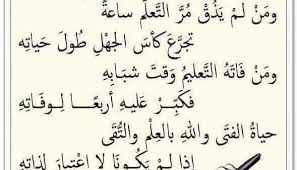 ومَنْ لَمْ يَذُقْ مُرَّ التَّعَلُّمِ ساعةً
تجرَّعَ كأسَ الجَهْلِ طُولَ حَياتِه
ومَن فَاتَهُ التَّعليمُ وَقتَ شَبابِه
فكَبِّرْ عَليهِ أربعًا لِوفَاتِه
حياةُ الفتَى واللهِ بالعِلْمِ والتُّقَى
إذا لمْ يكُونَا لا اعْتِبارَ لِذاتِه